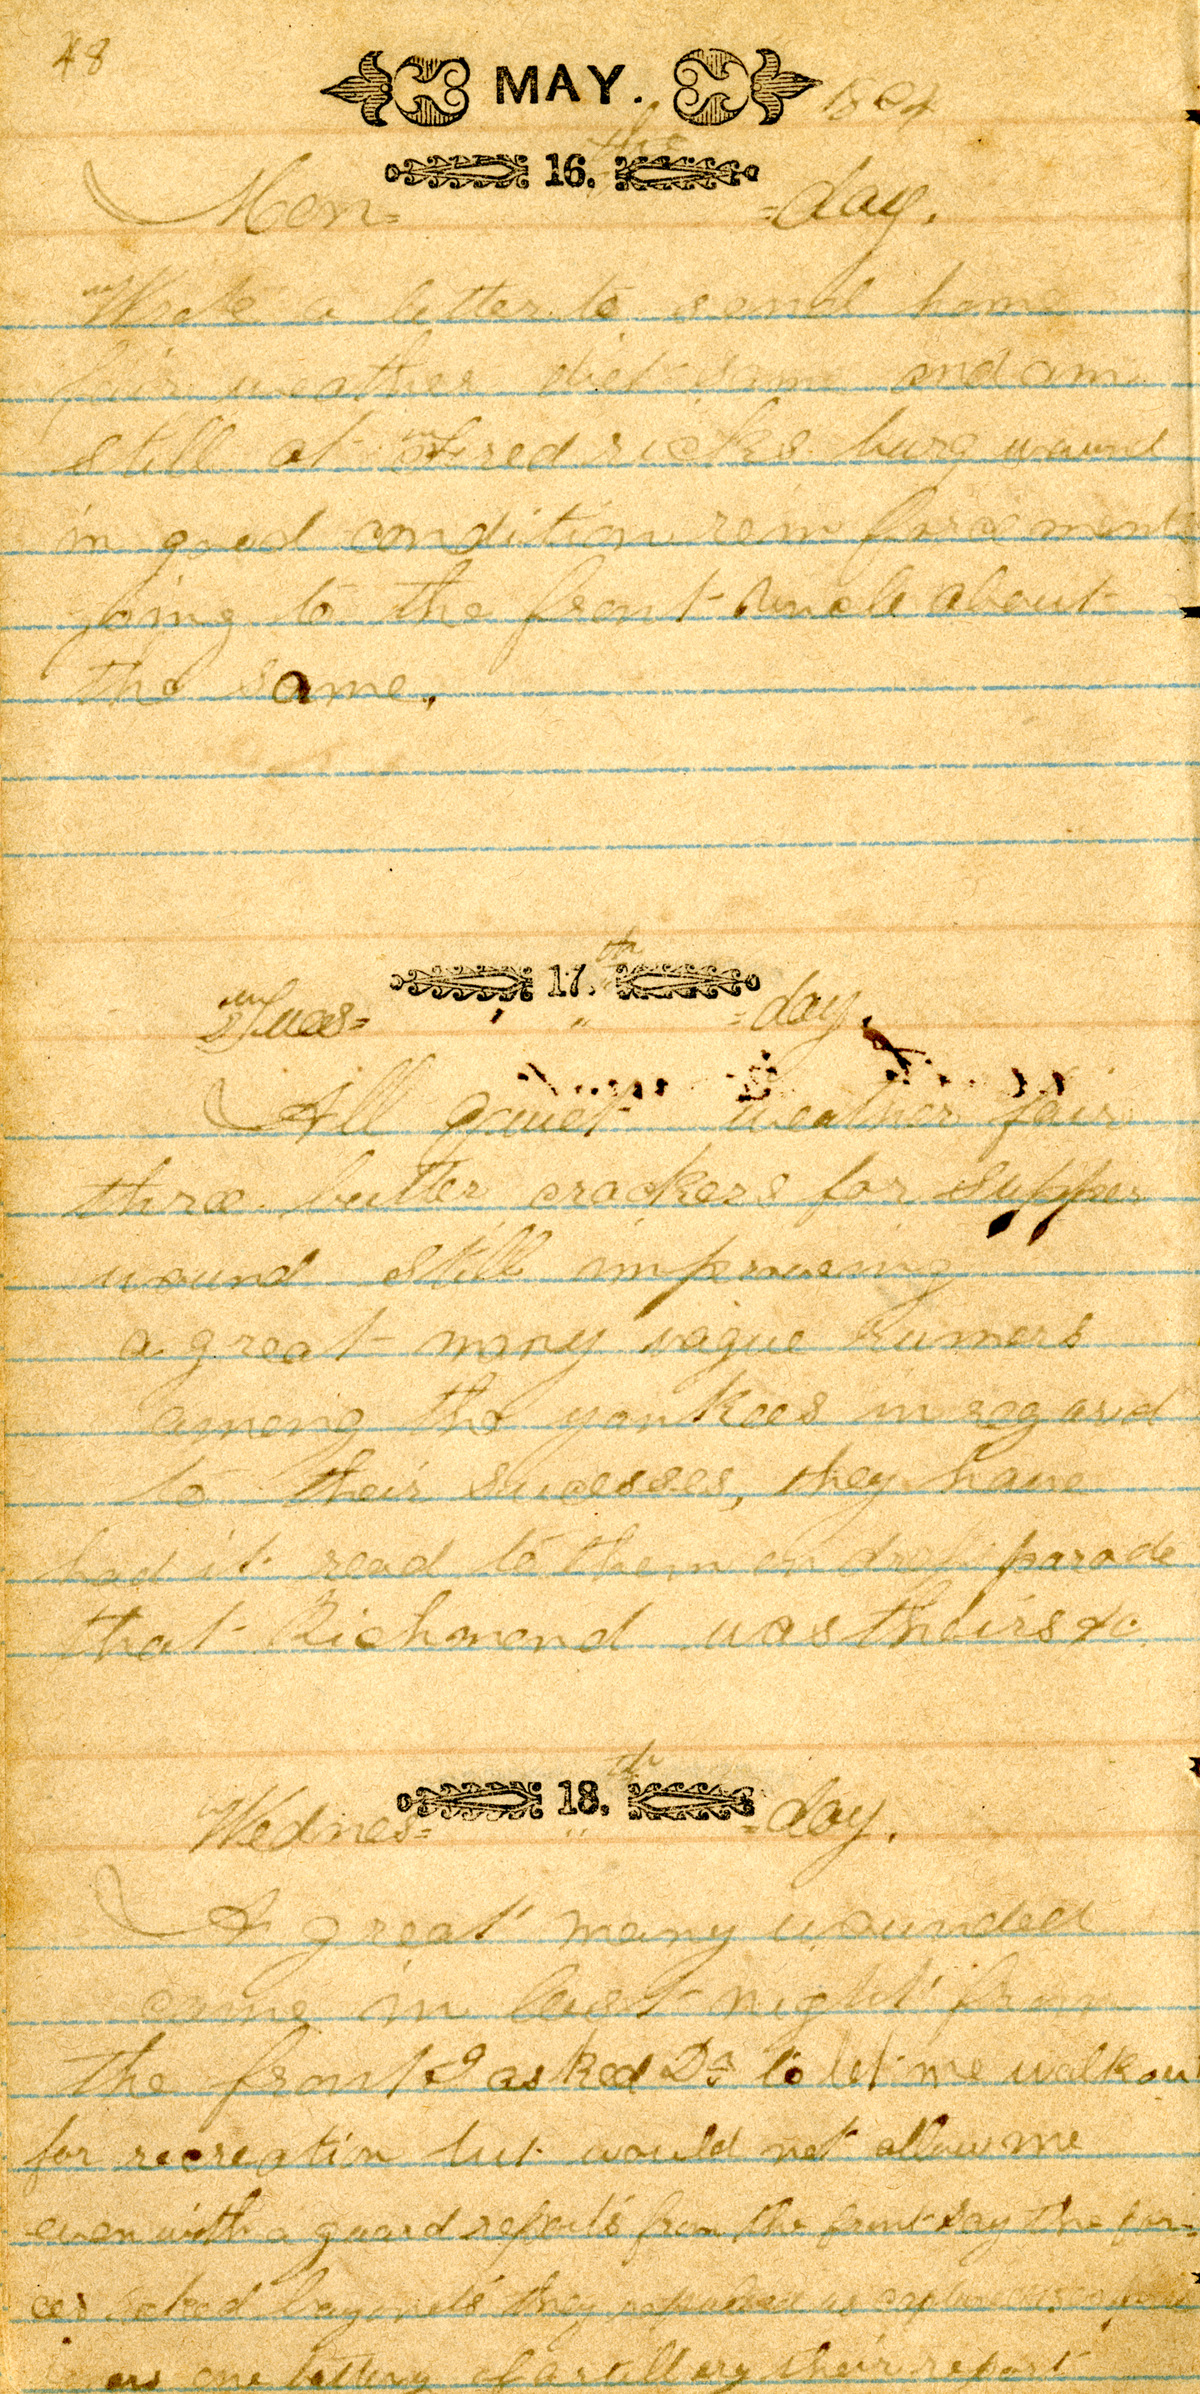 48
MAY. 1864
the
16.
Mon= =day.
Wrote a letter to send home
fair weather diet same and am
still at Fredricks burg wound
in good condition rein forcement
going to the front Uncle about
the same.
th
17.
Tues= " =day.
All quiet weather fair
three butter crackers for supper
wound still improveing
a great many vague rumers
among the yankees in regard
to their sucesses, they have
had it read to them on dress parade
that Richmond was theirs &c.
th
18.
Wednes= " =day.
A great many wounded
came in last night from
the front I asked Dr to let me walk out
for recreation but would not allow me
even with a guard reports from the front say the for=
ces locked bayonets they repulsed us
ers one battery of artillery their report